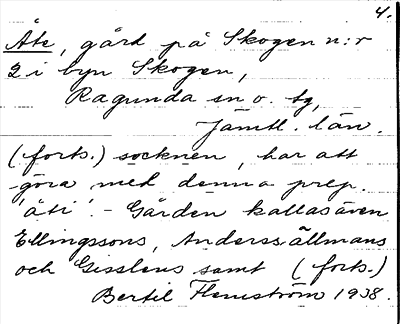 4.
Åte, gård på Skogen n:r
2 i byn Skogen,
Ragunda sn o. tg,
Jämtl. län.
(forts.) socknen, har att
göra med denna prep.
'åti'. - Gården kallas även
Ellingssons, Anders-ällmans
och Gisslens samt (forts.)
Bertil Flemström 1938.